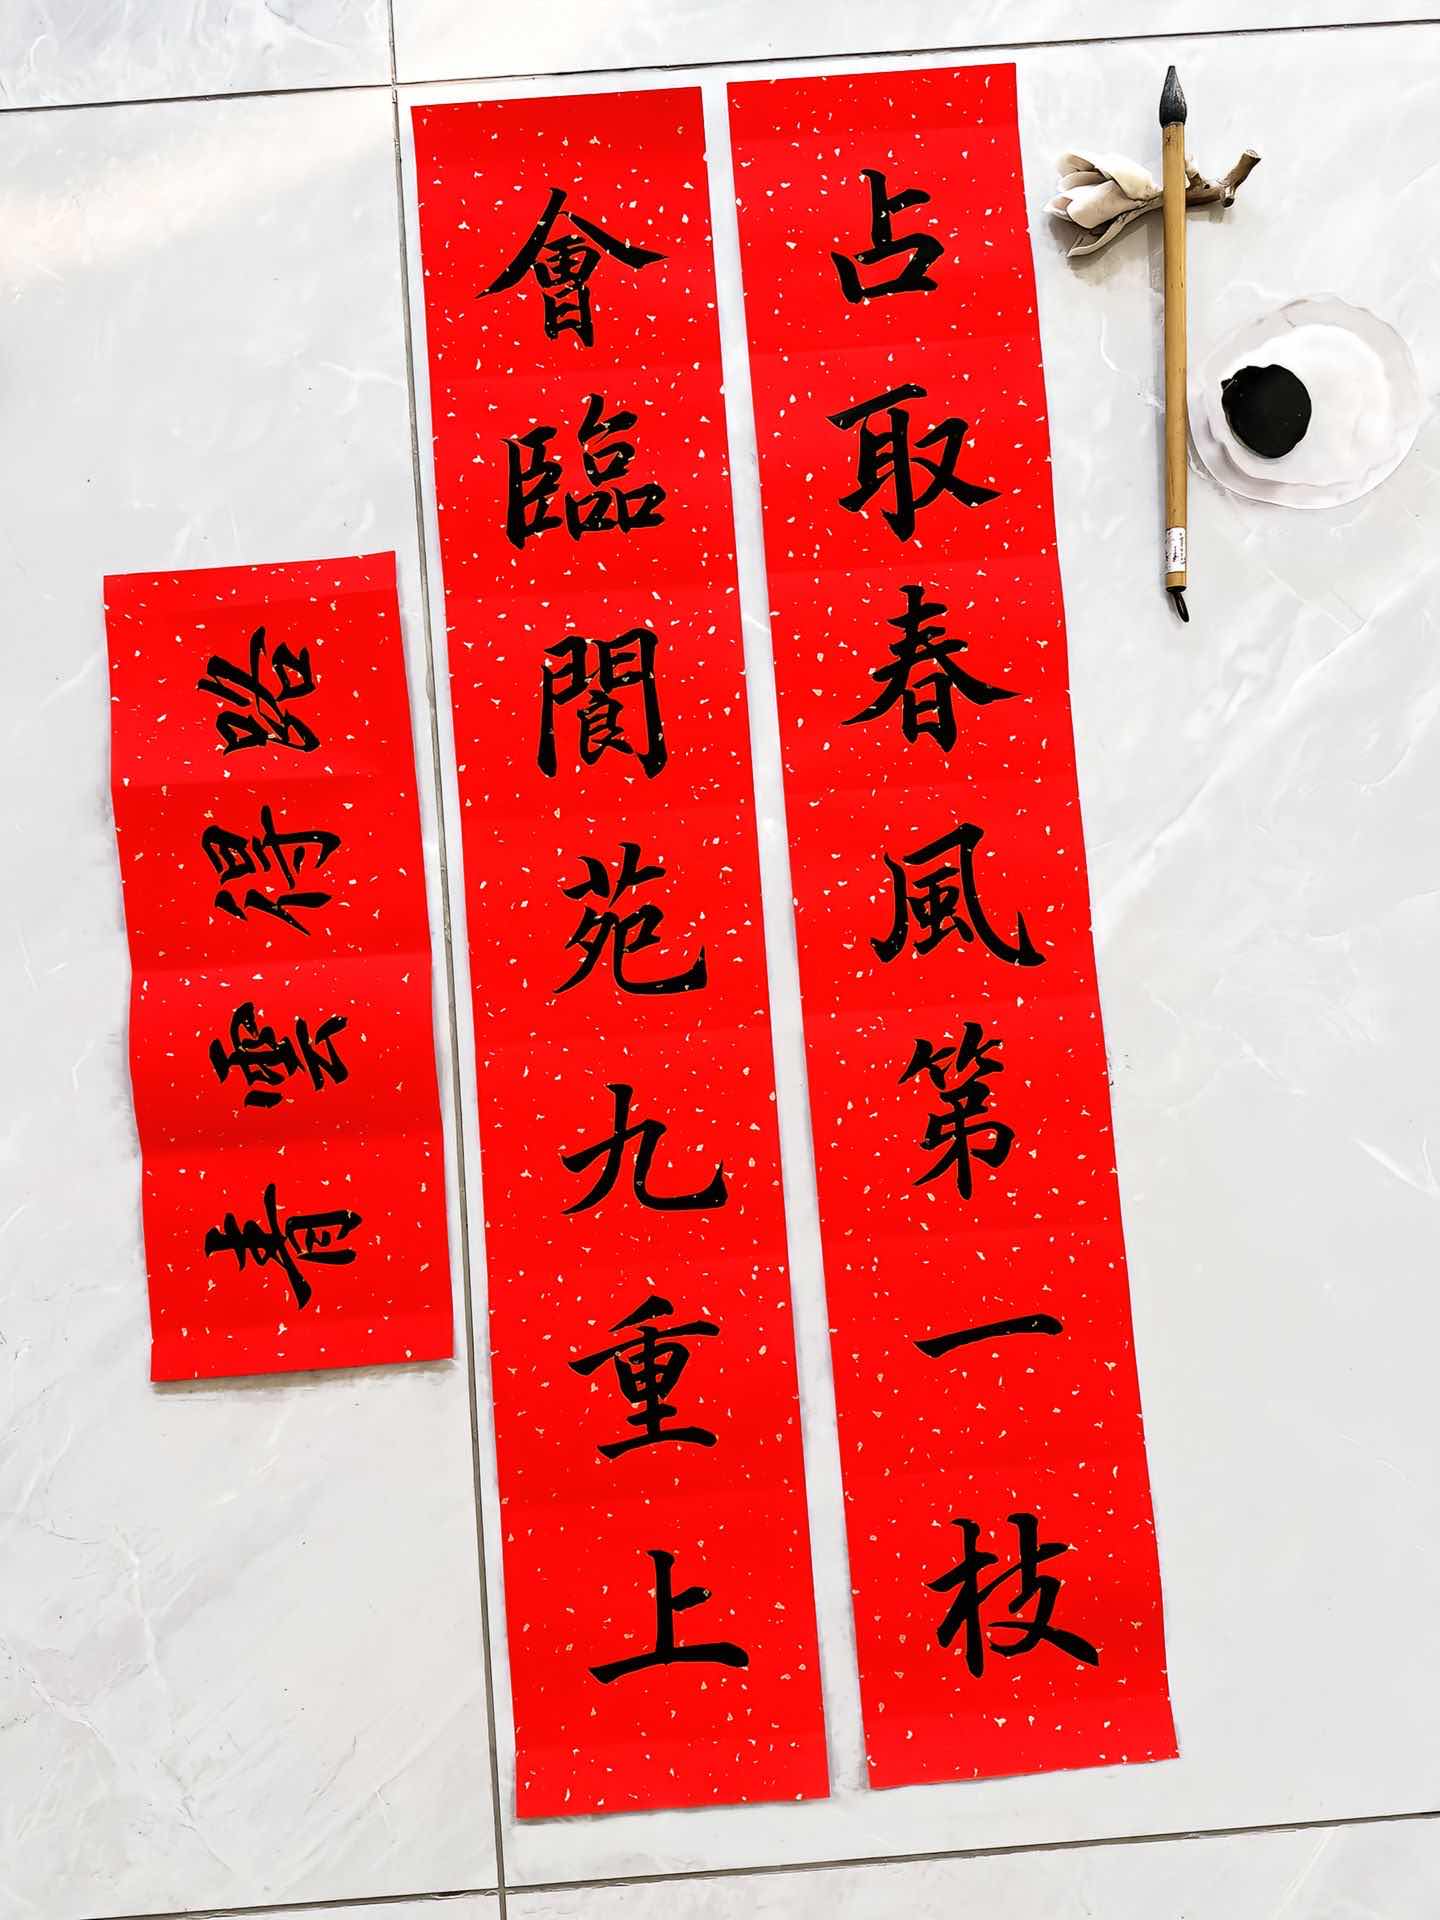 占取春風第一枝
會臨閬苑九重上
青雲得路